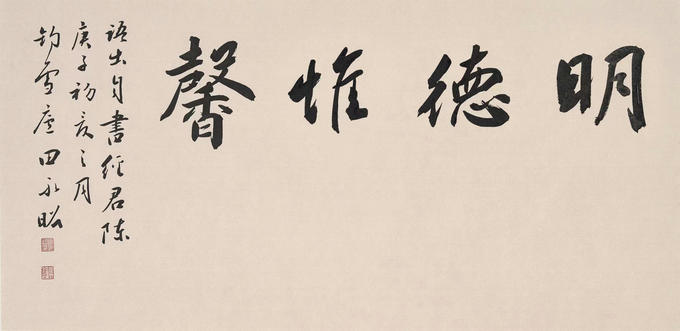 明德惟馨
語出自書經君陳
庚子初夏之月
鈞雪廬田永昭